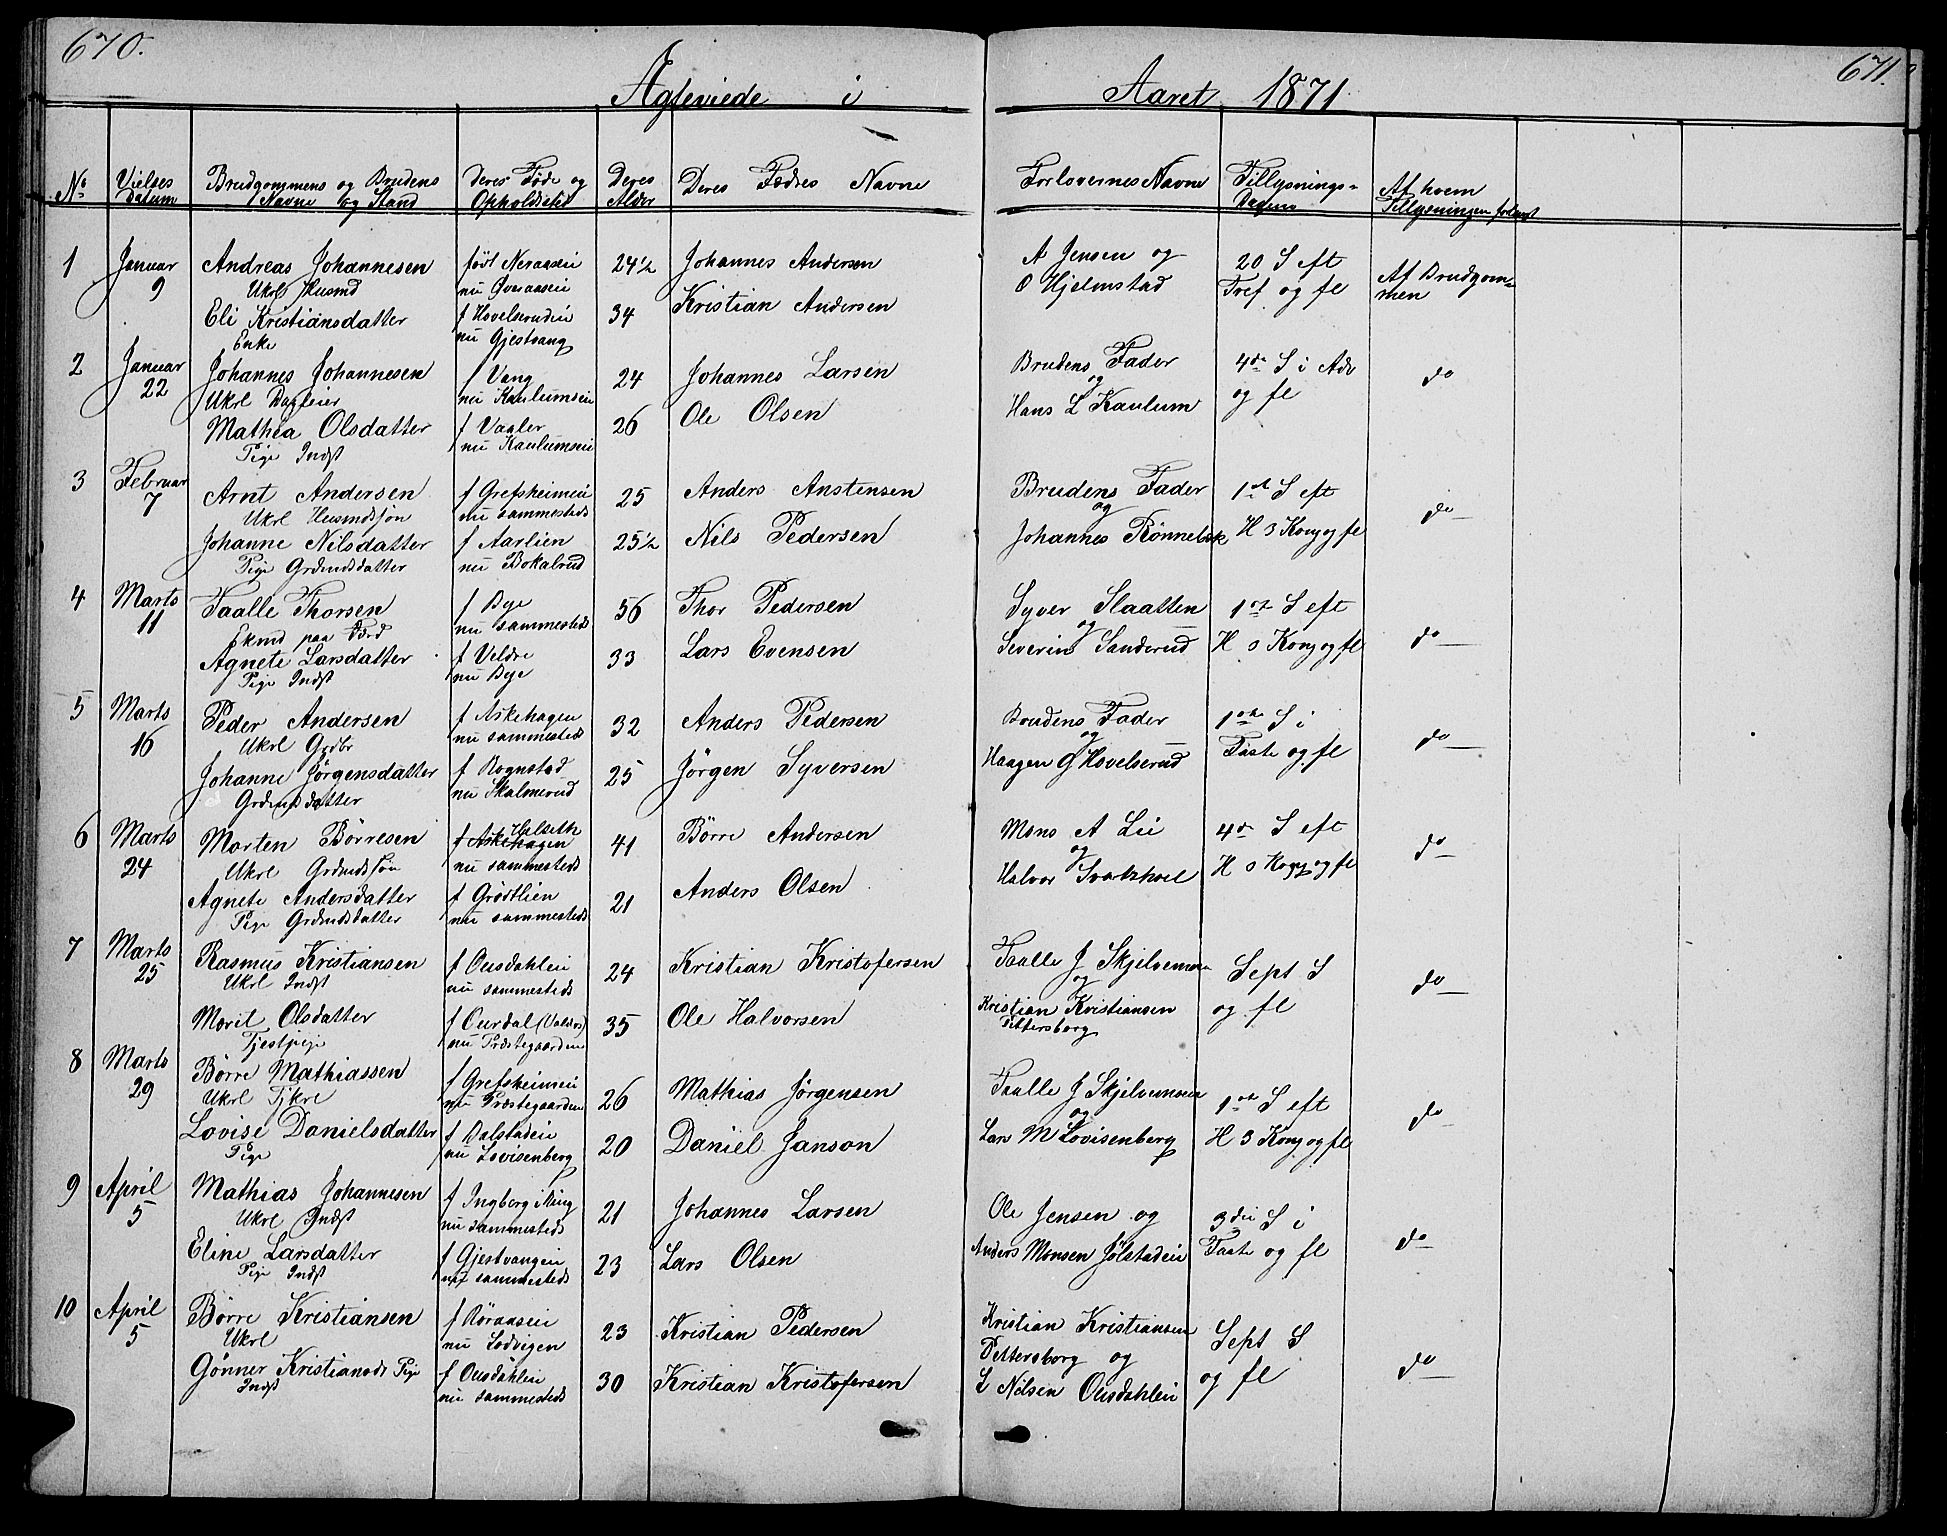 670.
671.
Ægteviede i Aaret 1871
No
Vielses Datum
Brudgommens og Brudens Navne og Stand
Deres Føde og Opholdssted
Deres Alder
Deres Fædres Navne
Forlovernes Navne
Tillysnings-Dagene
Af hvem Tillysningen forlangt
1 Januar 9
Andreas Johannesen født Neraaseie 24½ Johannes Andersen A Jensen og 20 S eft
Ukrl Husmd nu Øveraaseie O Hjelmstad Tref og fl Af Brudgommen
Eli Kristiansdatter f Hovelsrudeie 34 Kristian Andersen
Enke nu Gjestvang
2 Januar 22
Johannes Johannesen f Vang 24 Johannes Larsen Brudens Fader 4de S i Adv do
Ukrl Dagleier nu Kaulumseie og og fl
Mathea Olsdatter f Vaaler 26 Ole Olsen Hans L Kaulum
Pige Indst nu Kaulumseie
3 Februar 7
Arnt Andersen f Grefsheimeie 25 Anders Anstensen Brudens Fader 1st S eft do
Ukrl Husmdssøn nu sammesteds og
Johanne Nilsdatter f Aarlien 25½ Nils Pedersen Johannes Rönnebek H 3 Kong og fl
Pige Grdmdsdatter nu Bokalrud
4 Marts 11
Taalle Thorsen f Bye 56 Thor Pedersen Syver Slaatten 1ste S eft
Ekmd paa Förd nu sammesteds og
Agnete Larsdatter f Veldre 33 Lars Evensen Severin Sanderud H 3 Kong og fl do
Pige Indst nu Bye
5 Marts 16
Peder Andersen f Askehagen 32 Anders Pedersen Brudens Fader 1ste S i do
Ukrl Grdbr nu sammesteds og Faste og fl
Johanne Jørgensdatter f Rognstad 25 Jørgen Syversen Haagen G Hovelserud
Grdmdsdatter nu Skalmerud
6 Marts 24
Morten Börresen f Askehagen Helseth 41 Börre Andersen Mons A Lie 4de S eft do
Ukrl Grdmdssøn nu sammesteds og H 3 Kong og fl
Agnete Andersdatter f Grödtlien 21 Anders Olsen Halvor
Pige Grdmdsdatter nu sammesteds
7 Marts 25
Rasmus Kristiansen f Ousdahleie 24 Kristian Kristofersen Taalle J Sept S do
Ukrl Indst nu sammesteds og og fl
Marit Olsdatter f Ourdal (Valdrs) 35 Ole Halvorsen Kristian Kristiansen
Tjestpige nu Præstegaarden Pettersborg
8 Marts 29
Börre Mathiassen f Grefsheimeie 26 Mathias Jørgensen Taalle J 1ste S eft do
Ukrl Tjkrl nu Præstegaarden og
Lovise Danielsdatter f Dalstadeie 20 Daniel Janson Lars M Lovisenberg H 3 Kong og fl
Pige nu Lovisenberg
9 April 5
Mathias Johannesen f Ingberg i Ring 21 Johannes Larsen Ole Jensen og 3die S i do
Ukrl Indst nu sammesteds
Eline Larsdatter f Gjestvangeie 23 Lars Olsen Anders Monsen Jølstadeie Faste og fl
Pige Indst nu sammesteds
10 April 5
Börre Kristiansen f Röraaseie 23 Kristian Pedersen Kristian Kristiansen Sept S do
Ukrl nu Lodvigen Pettersborg og og fl
Gönner Kristiansdt Pige f Ousdahleie 30 Kristian Kristofersen L Nilsen Ousdahleie
Indst nu sammesteds